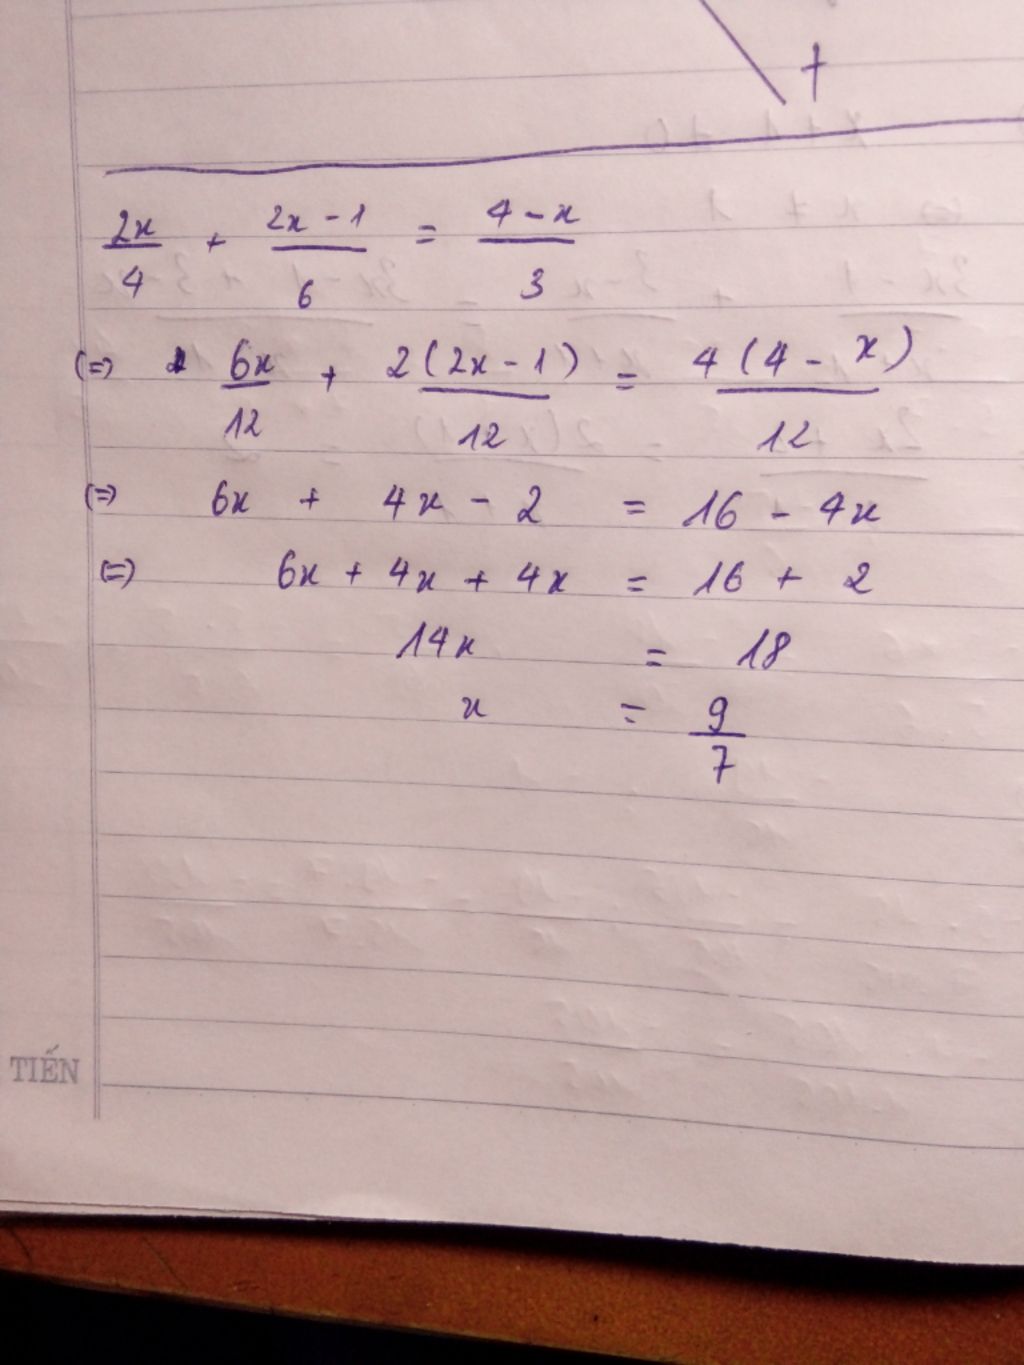 +
2x/4 + (2x - 1)/6 = (4 - x)/3
(=) 6x/12 + 2(2x - 1)/12 = 4(4 - x)/12
(=) 6x + 4x - 2 = 16 - 4x
(=) 6x + 4x + 4x = 16 + 2
14x = 18
x = 9/7
TIẾN